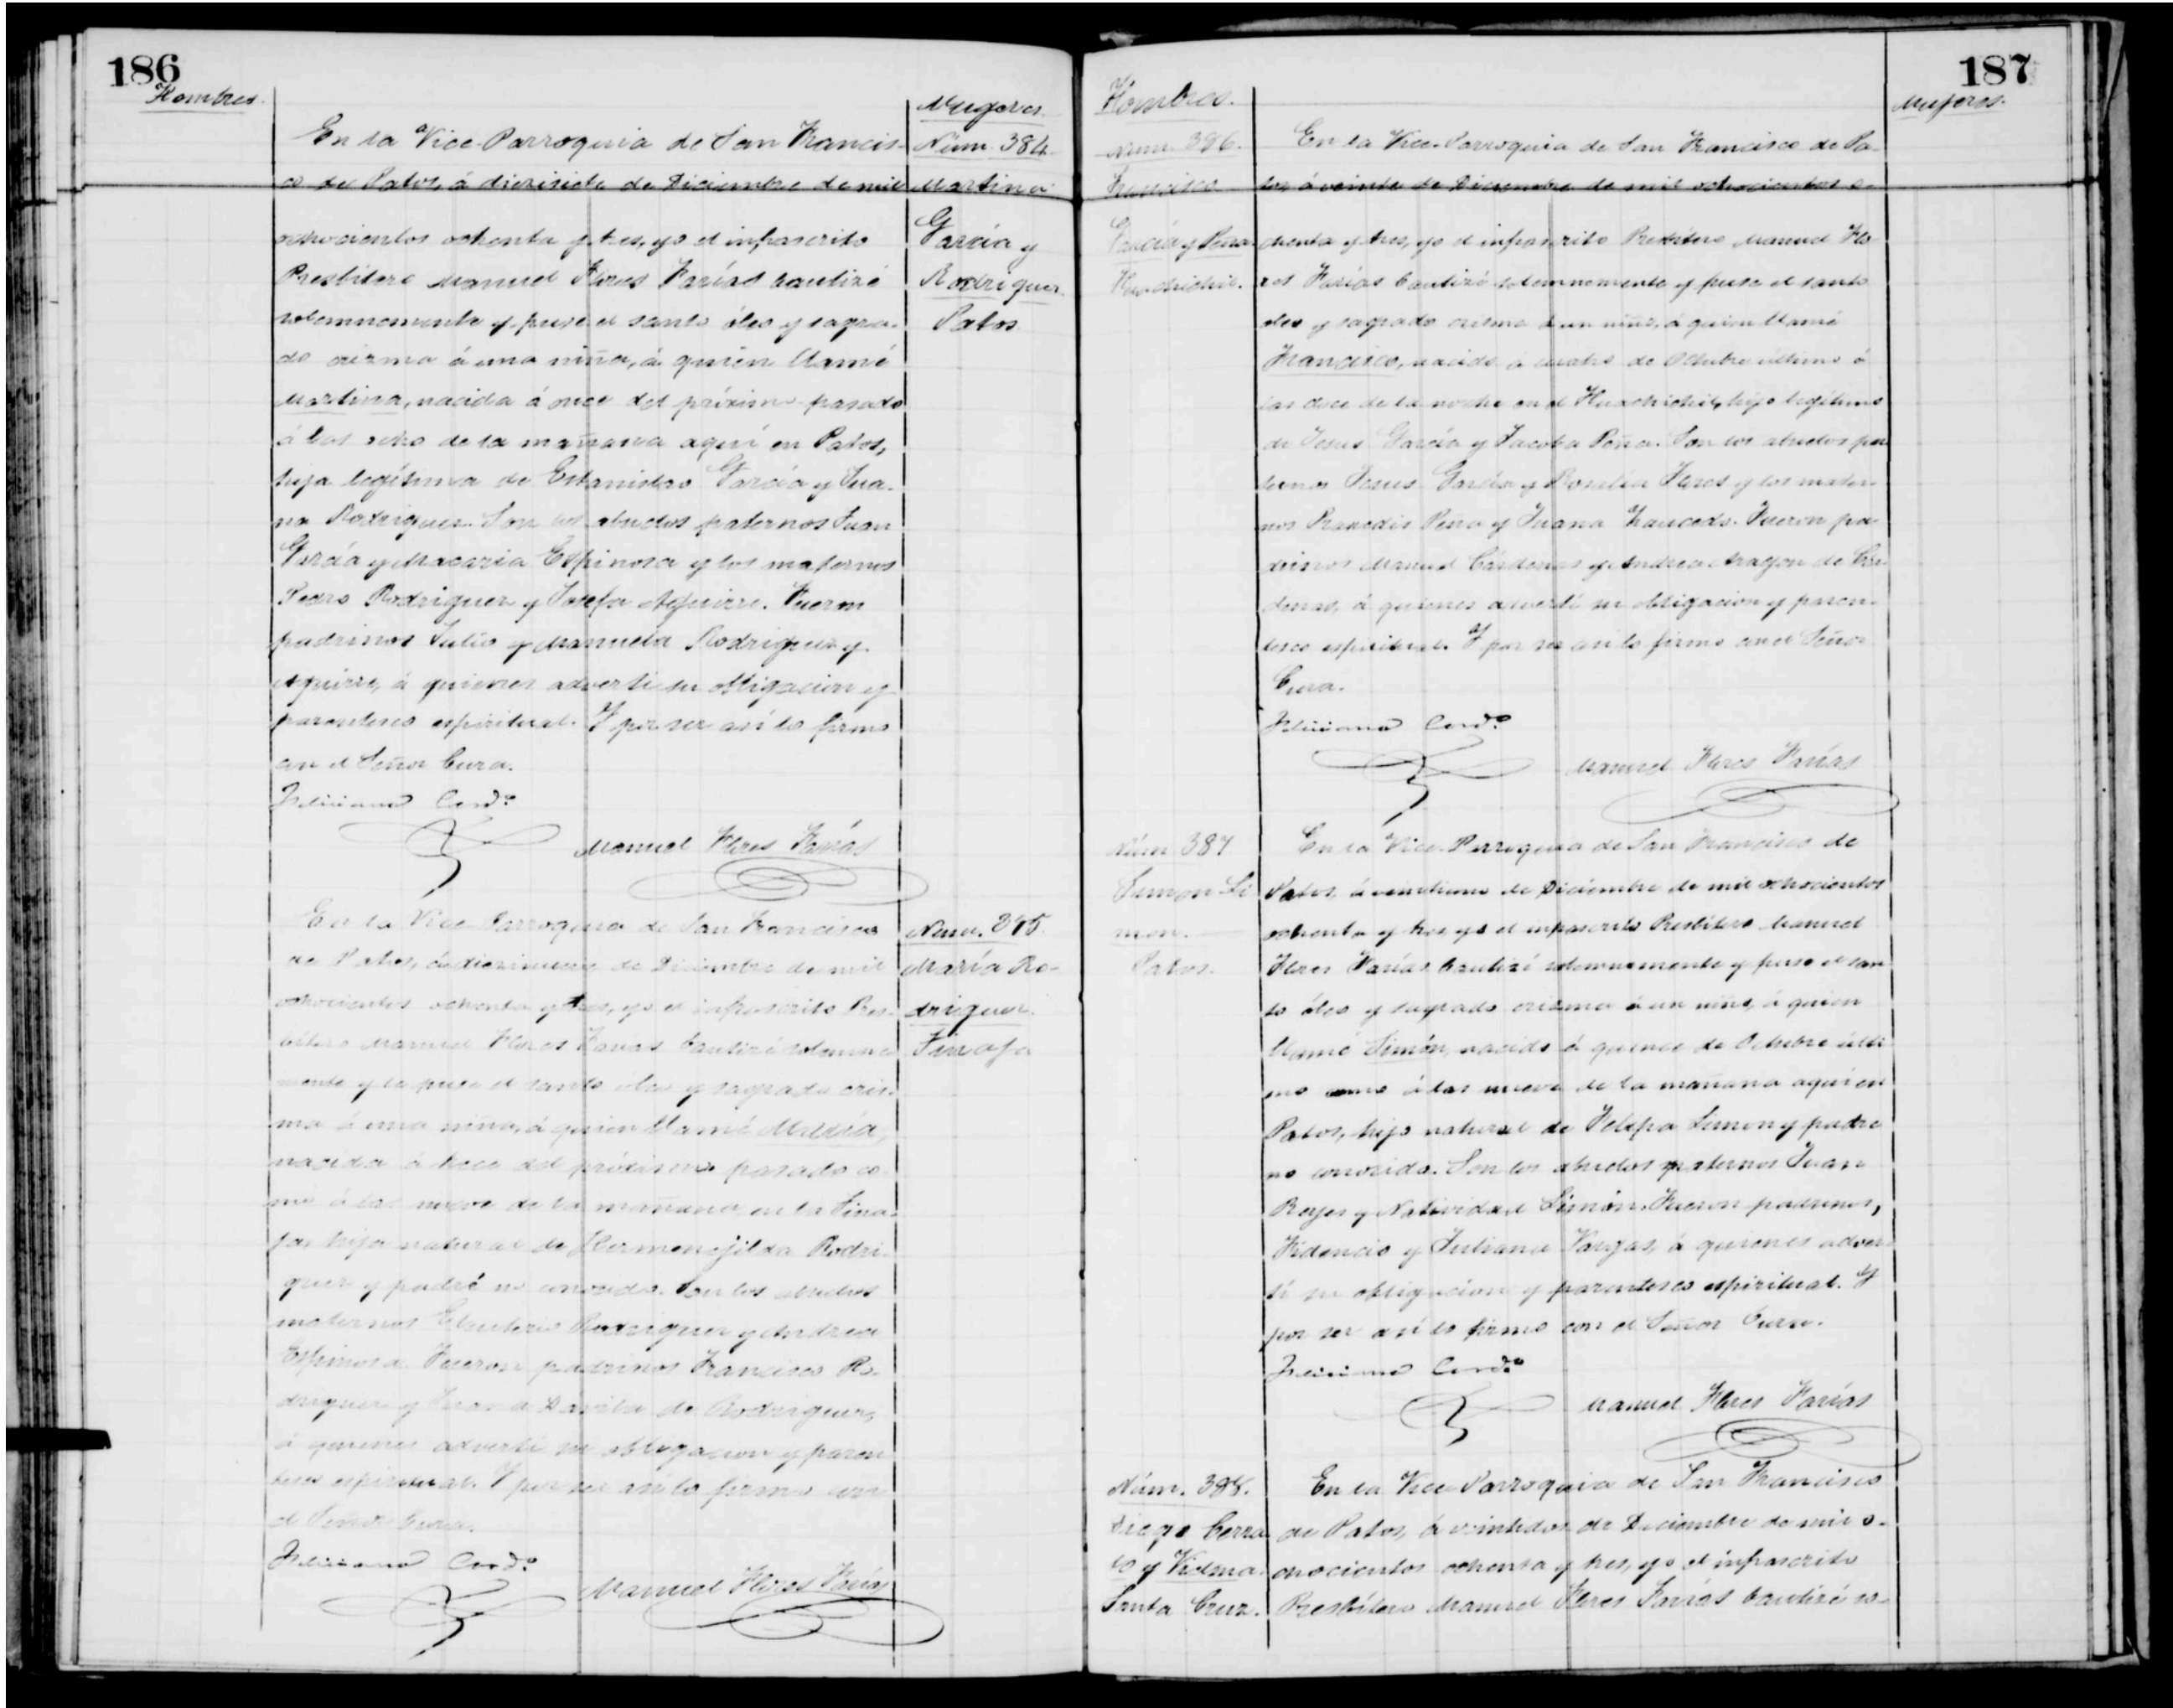 186
Hombres.
Mugeres.
En la Vice-Parroquia de San Francis-
co de Patos, á diezisiete de Diciembre de mil
ochocientos ochenta y tres, yo el infrascrito
Presbítero Manuel Flores Farías bautizé
solemnemente y puse el santo óleo y sagra-
do crisma á una niña, á quien llamé
Martina, nacida á once del próximo pasado
á las ocho de la mañana aquí en Patos,
hija legítima de Estanislao García y Jua-
na Rodriguez. Son los abuelos paternos Juan
García y Macaria Espinosa y los maternos
Pedro Rodriguez y Josefa Aguirre. Fueron
padrinos Julio y Manuela Rodriguez y
Aguirre, á quienes advertí su obligacion y
parentesco espiritual. Y por ser así lo firmo
con el Señor Cura.
Feliciano Cord.o
Manuel Flores Farías
Núm. 384.
Martina
García y
Rodriguez.
Patos
En la Vice-Parroquia de San Francisco
de Patos, á diezinueve de Diciembre de mil
ochocientos ochenta y tres, yo el infrascrito Pres-
bítero Manuel Flores Farías bautizé solemne-
mente y le puse el santo óleo y sagrado cris-
ma á una niña, á quien llamé María,
nacida á trece del próximo pasado co-
mo á las nueve de la mañana en la Tina-
ja, hija natural de Hermenejilda Rodri-
guez y padre no conocido. Son los abuelos
maternos Eleuterio Rodriguez y Andrea
Espinosa. Fueron padrinos Francisco Ro-
driguez y Juana Davila de Rodriguez,
á quienes advertí su obligacion y paren-
tesco espiritual. Y por ser así lo firmo con
el Señor Cura.
Feliciano Cord.o
Manuel Flores Farías
Núm. 385.
María Ro-
driguez.
Tinaja
187
Hombres.
Mujeres.
Núm. 386.
Francisco
García y Peña.
Huachichil.
En la Vice-Parroquia de San Francisco de Pa-
tos, á veinte de Diciembre de mil ochocientos o-
chenta y tres, yo el infrascrito Presbítero Manuel Flo-
res Farías bautizé solemnemente y puse el santo
oleo y sagrado crisma á un niño, á quien llamé
Francisco, nacido á cuatro de Octubre último á
las doce de la noche en el Huachichil, hijo legítimo
de Jesus García y Jacoba Peña. Son los abuelos pa-
ternos Jesus García y Rosalía Flores y los mater-
nos Praxedis Peña y Juana Sauceda. Fueron pa-
drinos Manuel Cárdenas y Andrea Aragon de Cár-
denas, á quienes advertí su obligacion y paren-
tesco espiritual. Y por ser así lo firmo con el Señor
Cura.
Feliciano Cord.o
Manuel Flores Farías
Núm 387
Simon Li
mon.
Patos.
En la Vice-Parroquia de San Francisco de
Patos, á veintiuno de Diciembre de mil ochocientos
ochenta y tres yo el infrascrito Presbítero Manuel
Flores Farías bautizé solemnemente y puse el san-
to óleo y sagrado crisma á un niño, á quien
llamé Simón, nacido á quince de Octubre últi-
mo como á las nueve de la mañana aquí en
Patos, hijo natural de Felipa Limon y padre
no conocido. Son los abuelos maternos Juan
Reyes y Natividad Limón. Fueron padrinos,
Fidencio y Juliana Vargas, á quienes adver-
tí su obligacion y parentesco espiritual. Y
por ser así lo firmo con el Señor Cura.
Feliciano Cord.o
Manuel Flores Farías
Núm. 388.
Diego Cerra
to y Vielma.
Santa Cruz.
En la Vice-Parroquia de San Francisco
de Patos, á veintedos de Diciembre de mil o-
chocientos ochenta y tres, yo el infrascrito
Presbítero Manuel Flores Farías bautizé so-